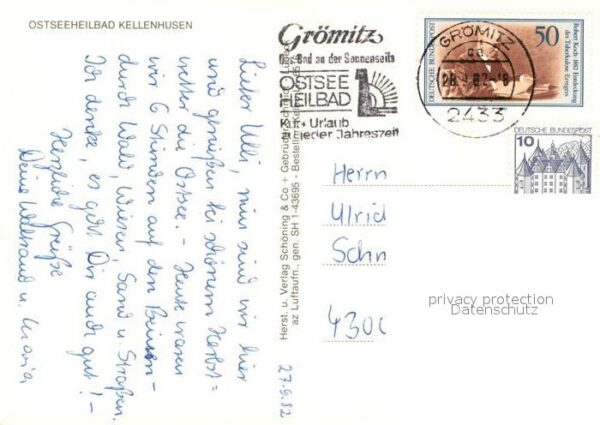 OSTSEEHEILBAD KELLENHUSEN
Lieber Ulli, nun sind wir hier
und genießen bei schönem Herbst=
wetter die Ostsee. - Heute waren
wir 6 Stunden auf den Beinen -
durch Wald, Wiesen, Sand u. Straßen.
Ich denke, es geht Dir auch gut! -
Herzliche Grüße
Deine Waltraud u. Maria
27.9.82
Herst. u. Verlag Schöning & Co + Gebrüder Schmidt, Lübeck
az Luftaufn., gen. SH 1-43695 - Bestellnr.
Grömitz
Das Bad an der Sonnenseite
OSTSEE
HEILBAD
Kur + Urlaub
zu jeder Jahreszeit
GRÖMITZ
28.9.82-18
2433
DEUTSCHE BUNDESPOST
50
Robert Koch 1882 Entdeckung
des Tuberkulose-Erregers
DEUTSCHE BUNDESPOST
10
Herrn
Ulrich
Schn
4300
privacy protection
Datenschutz